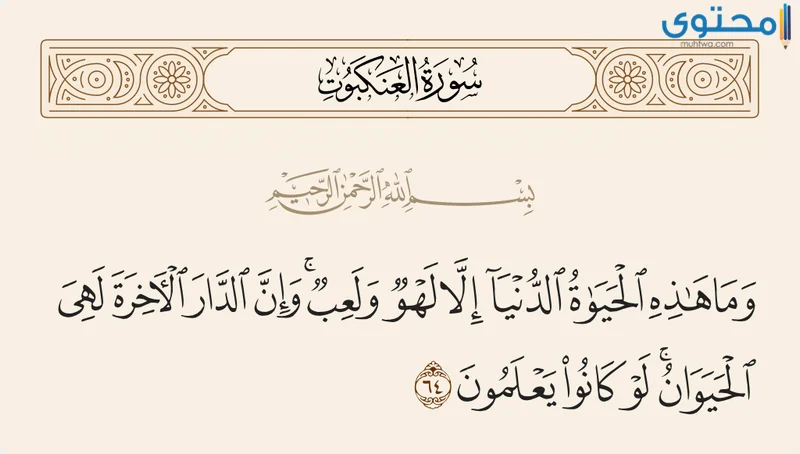 محتوى
muhtwa.com
سُورَةُ العَنكَبُوتِ
بِسْمِ ٱللَّهِ ٱلرَّحْمَٰنِ ٱلرَّحِيمِ
وَمَا هَٰذِهِ ٱلْحَيَوٰةُ ٱلدُّنْيَآ إِلَّا لَهْوٌ وَلَعِبٌ ۚ وَإِنَّ ٱلدَّارَ ٱلْأَخِرَةَ لَهِىَ
ٱلْحَيَوَانُ ۚ لَوْ كَانُوا۟ يَعْلَمُونَ ٦٤